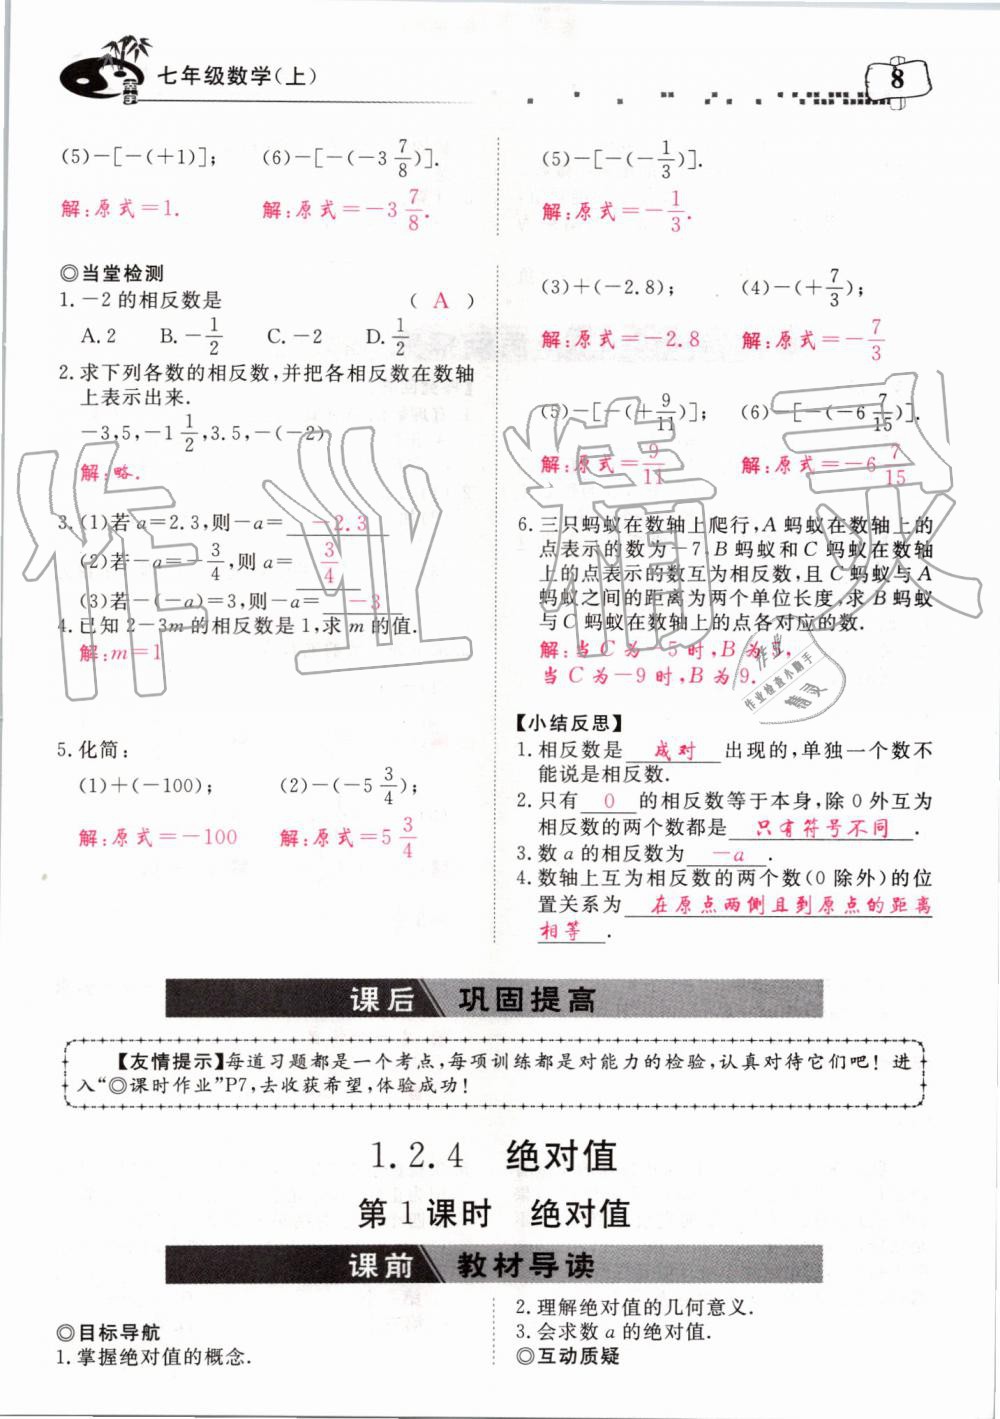 七年级数学(上)
8
(5)-[-(+1)]; (6)-[-(-3 7/8)].
解:原式=1. 解:原式=-3 7/8.
◎当堂检测
1.-2的相反数是 ( A )
A.2 B.-1/2 C.-2 D.1/2
2.求下列各数的相反数,并把各相反数在数轴
上表示出来.
-3,5,-1 1/2,3.5,-(-2)
解:略.
3.(1)若a=2.3,则-a= -2.3
(2)若-a=-3/4,则a= 3/4
(3)若-(-a)=3,则-a= -3
4.已知2-3m的相反数是1,求m的值.
解:m=1
5.化简:
(1)+(-100); (2)-(-5 3/4);
解:原式=-100 解:原式=5 3/4
(5)-[-(-1/3)].
解:原式=-1/3.
(3)+(-2.8); (4)-(+7/3);
解:原式=-2.8 解:原式=-7/3
(5)-[-(+9/11)]; (6)-[-(-6 7/15)].
解:原式=9/11 解:原式=-6 7/15
6.三只蚂蚁在数轴上爬行,A蚂蚁在数轴上的
点表示的数为-7,B蚂蚁和C蚂蚁在数轴
上的点表示的数互为相反数,且C蚂蚁与A
蚂蚁之间的距离为两个单位长度,求B蚂蚁
与C蚂蚁在数轴上的点各对应的数.
解:当C为-5时,B为5,
当C为-9时,B为9.
【小结反思】
1.相反数是 成对 出现的,单独一个数不
能说是相反数.
2.只有 0 的相反数等于本身,除0外互为
相反数的两个数都是 只有符号不同 .
3.数a的相反数为 -a .
4.数轴上互为相反数的两个数(0除外)的位
置关系为 在原点两侧且到原点的距离
相等 .
课后 巩固提高
【友情提示】每道习题都是一个考点,每项训练都是对能力的检验,认真对待它们吧!进
入“◎课时作业”P7,去收获希望,体验成功!
1.2.4 绝对值
第1课时 绝对值
课前 教材导读
◎目标导航
1.掌握绝对值的概念.
2.理解绝对值的几何意义.
3.会求数a的绝对值.
◎互动质疑
作业精灵
作业
作业检查小助手
精灵